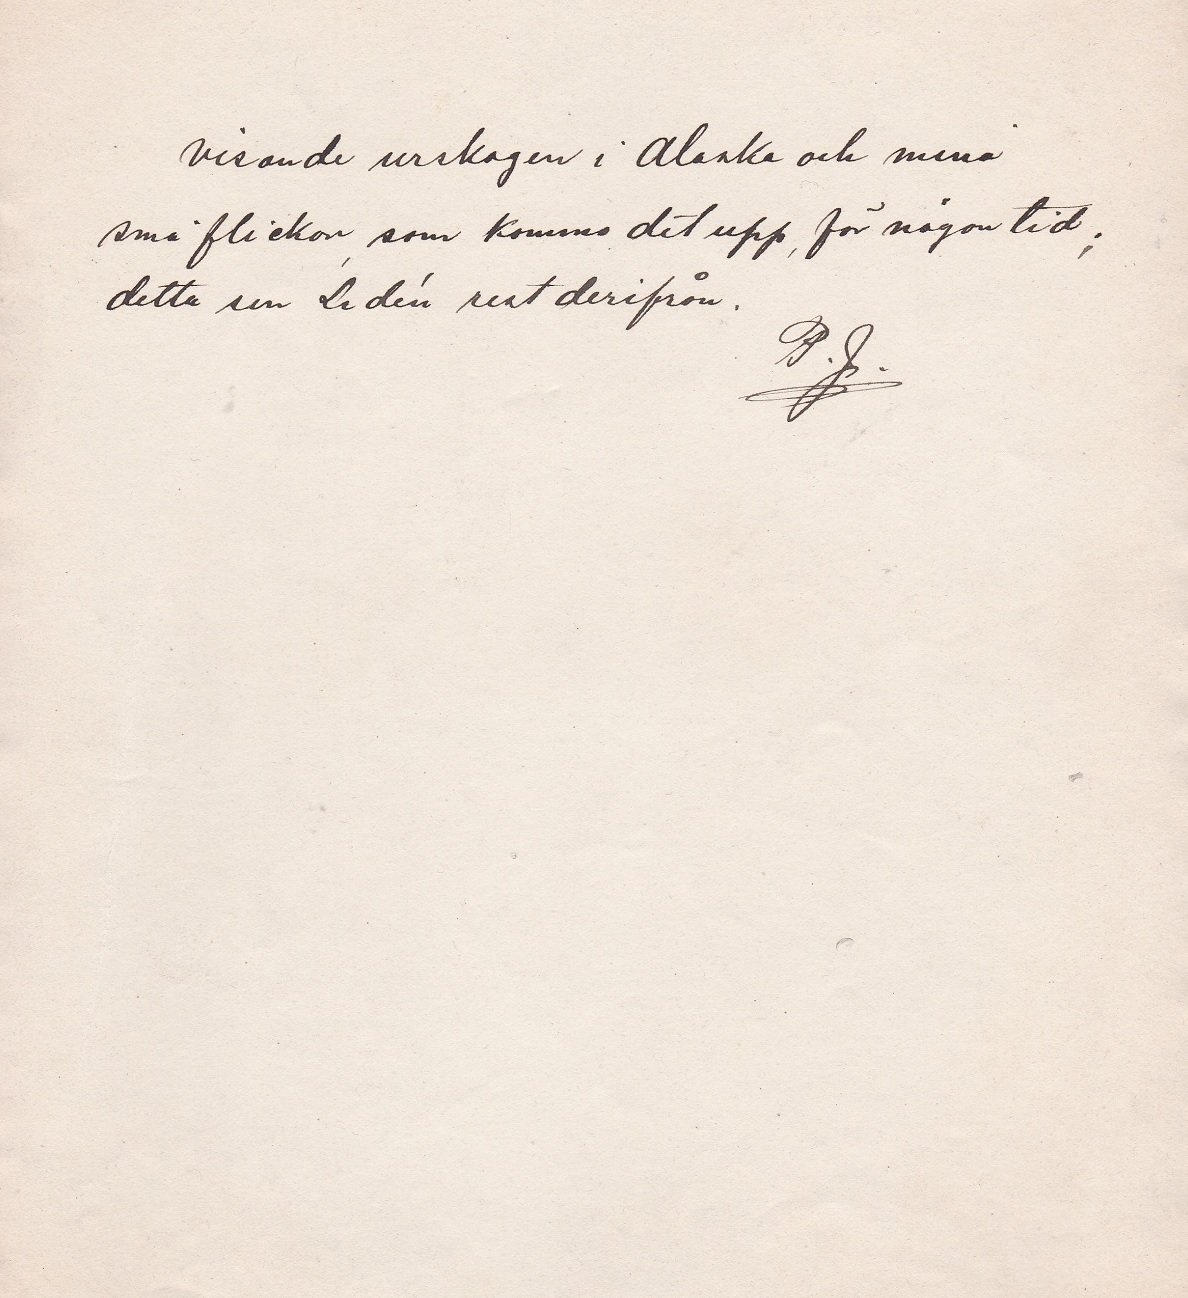 visande urskogen i Alaska och mina
små flickor som komma dit upp, för någon tid;
detta sen Lidén rest derifrån.
P. J.